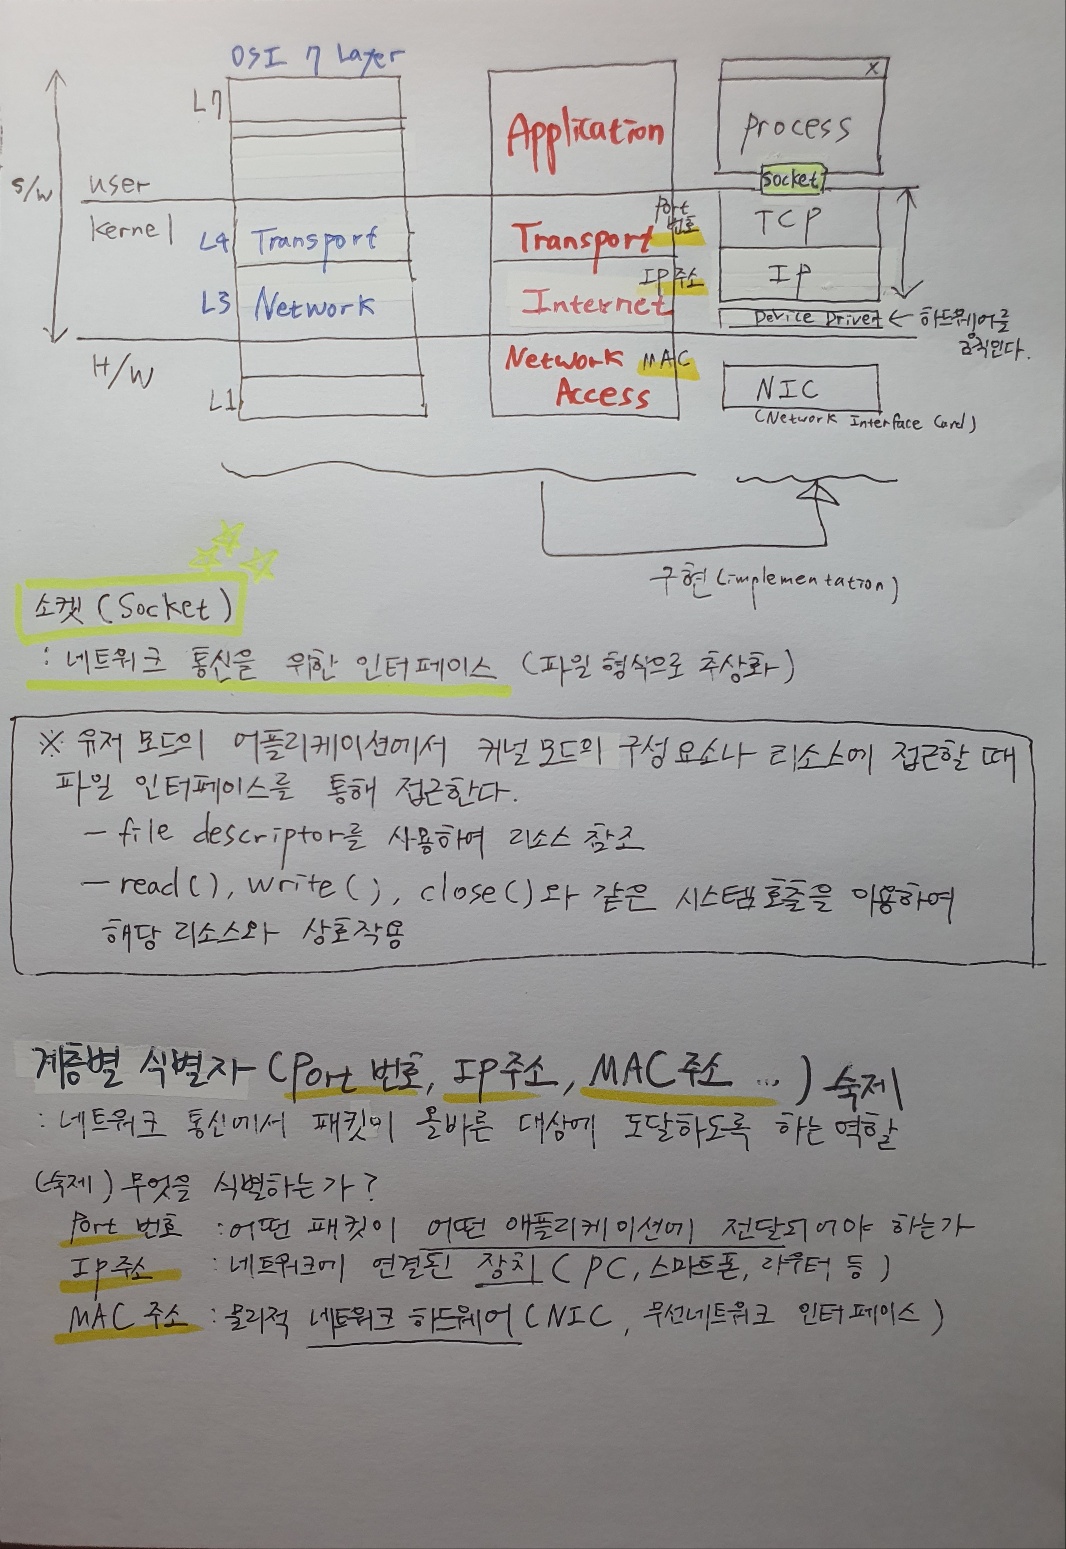 OSI 7 Layer
L7
S/W
user
kernel
L4 Transport
L3 Network
H/W
L1
Application
Transport
Port 번호
Internet
IP주소
Network Access
MAC
X
process
socket
TCP
IP
Device Driver ← 하드웨어를
움직인다.
NIC
(Network Interface Card)
구현(implementation)
소켓(Socket)
: 네트워크 통신을 위한 인터페이스 (파일 형식으로 추상화)
※ 유저 모드의 어플리케이션에서 커널모드의 구성요소나 리소스에 접근할 때
파일 인터페이스를 통해 접근한다.
- file descriptor를 사용하여 리소스 참조
- read(), write(), close()와 같은 시스템호출을 이용하여
해당 리소스와 상호작용
계층별 식별자 (Port 번호, IP주소, MAC주소 ...) 숙제
: 네트워크 통신에서 패킷이 올바른 대상에 도달하도록 하는 역할
(숙제) 무엇을 식별하는가?
Port 번호 : 어떤 패킷이 어떤 애플리케이션에 전달되어야 하는가
IP주소 : 네트워크에 연결된 장치(PC, 스마트폰, 라우터 등)
MAC 주소 : 물리적 네트워크 하드웨어(NIC, 무선네트워크 인터페이스)